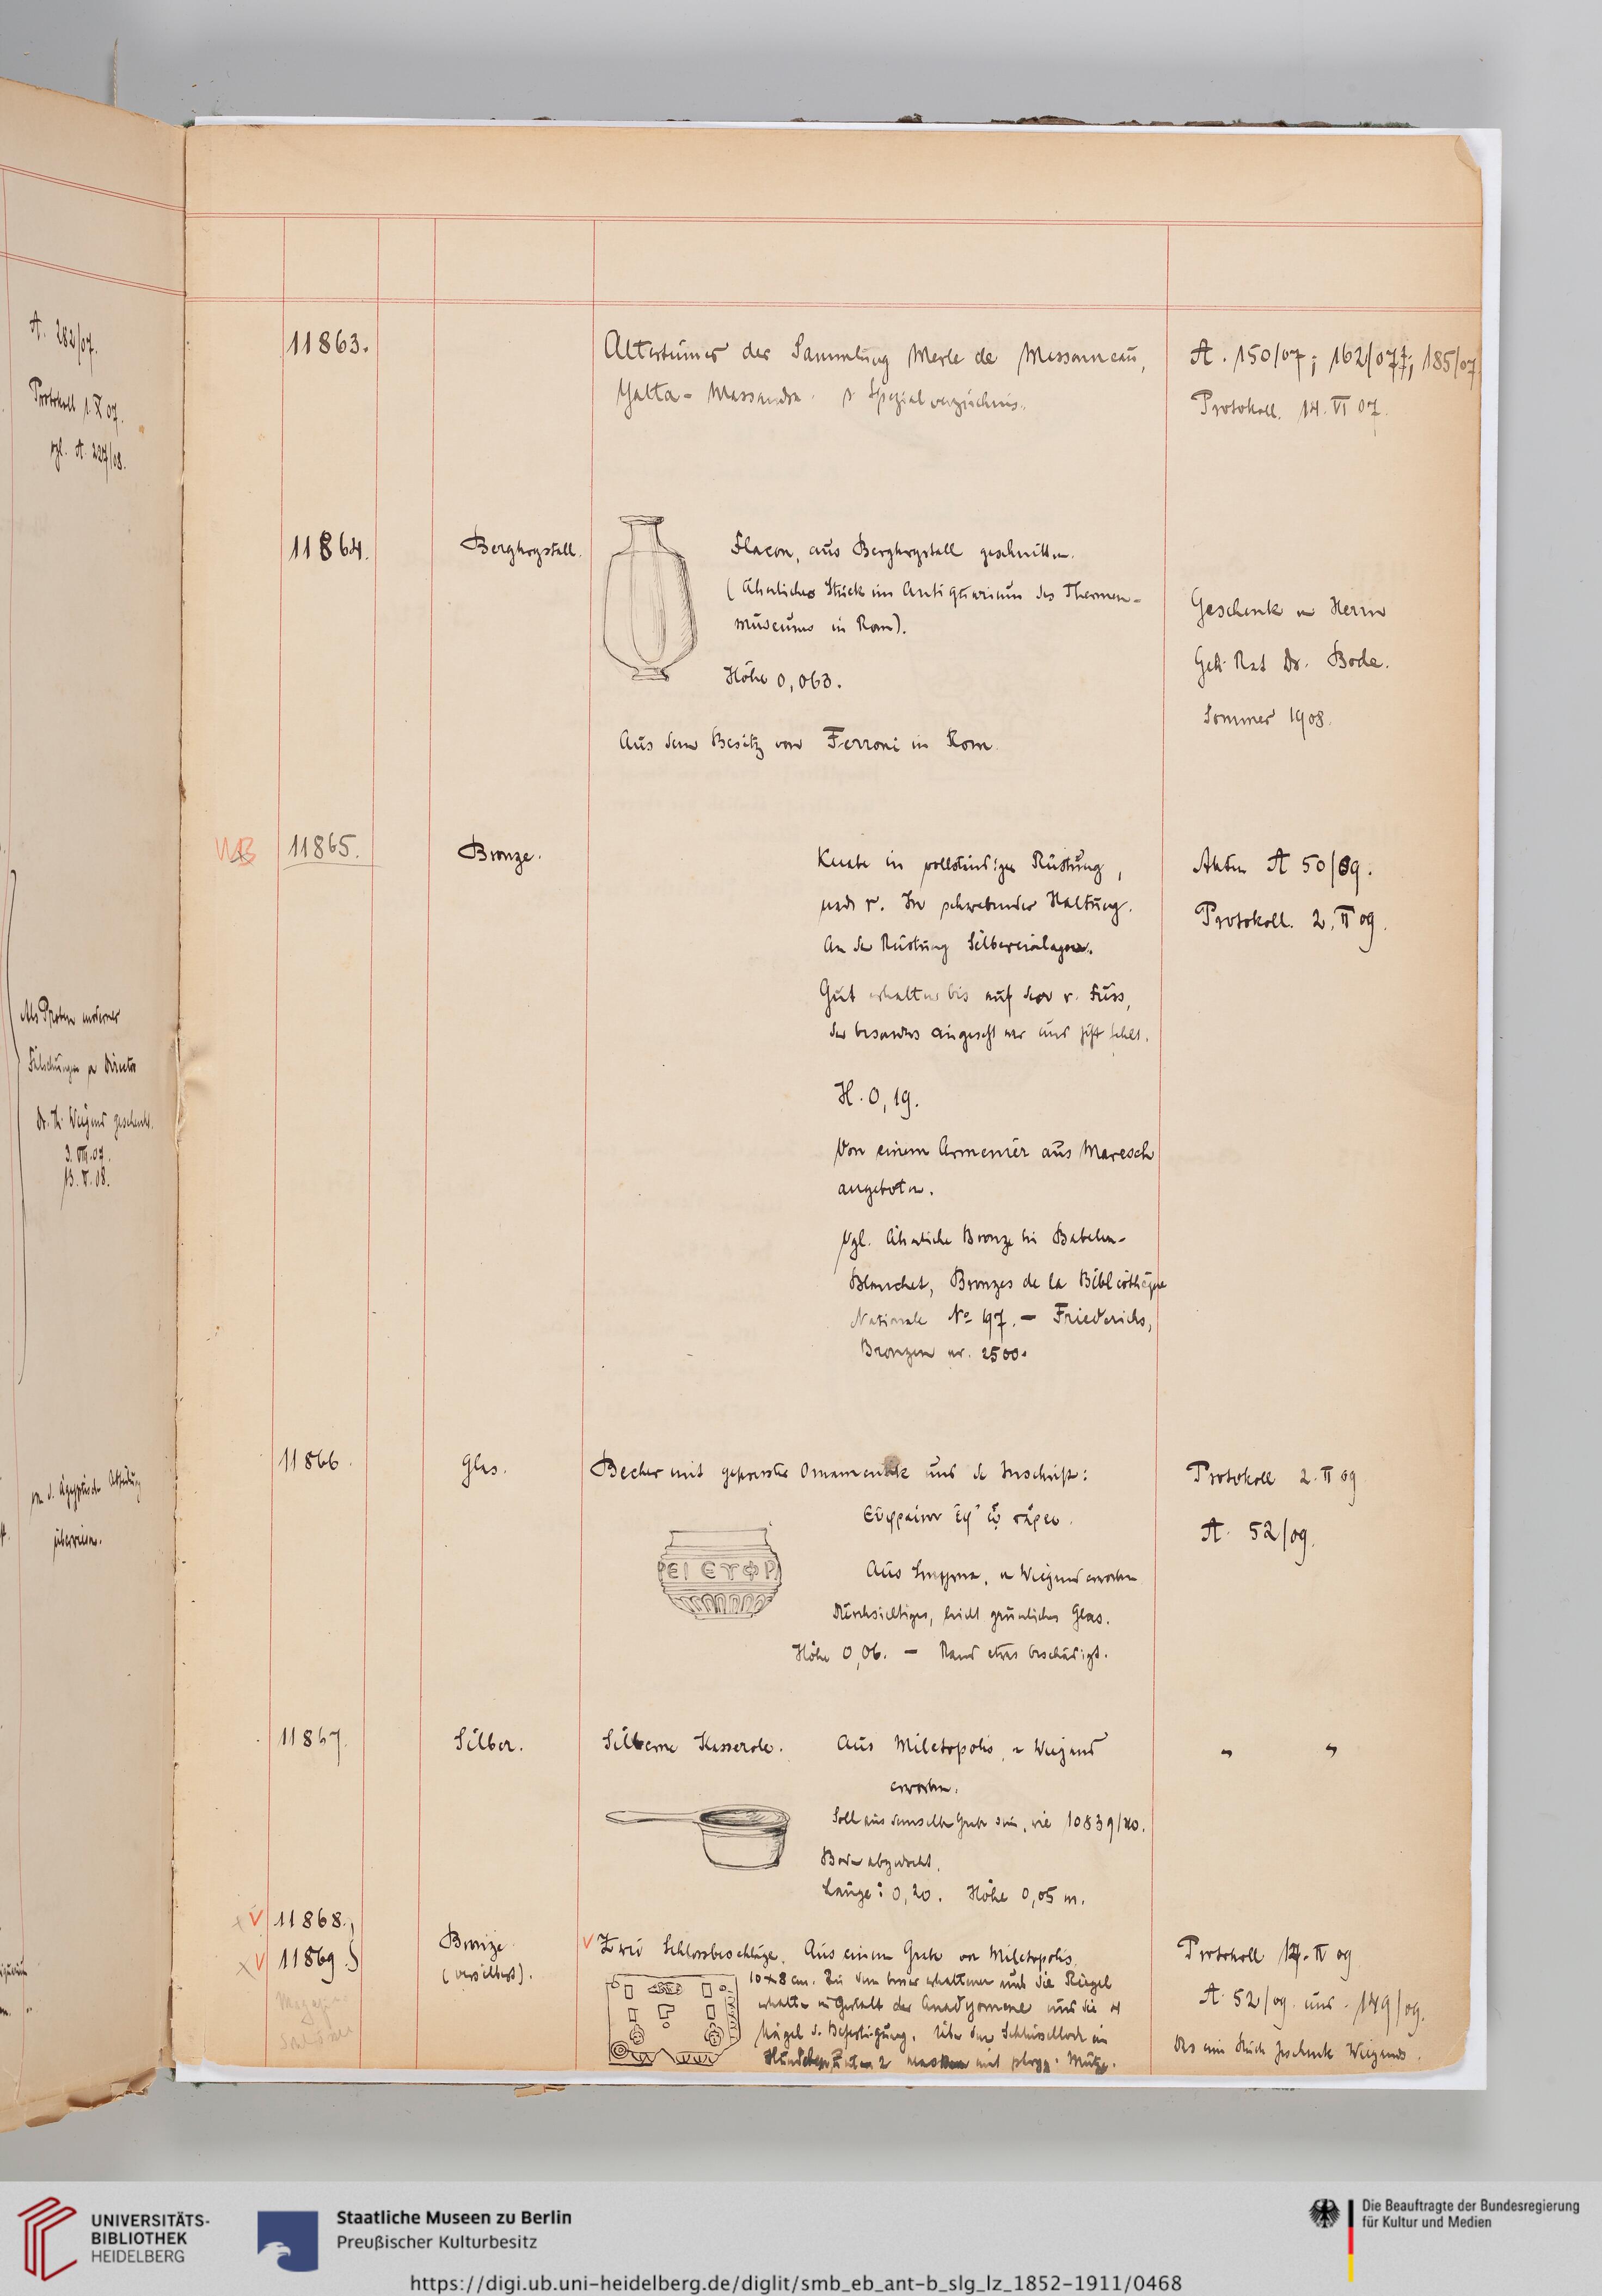 A. 282/07.
Protokoll 1. X 07.
vgl. A. 237/08.
Als Proben moderner
Fälschungen Director
Dr. Th. Wiegand geschenkt.
3. VIII. 07.
13. V. 08.
v. d. Ägyptische Abteilung
überwiesen.
11863.
Altertümer der Sammlung Merle de Massoneau,
Yalta - Massandra. s. Spezialverzeichnis.
A. 150/07; 162/07; 185/07
Protokoll. 14. VI 07.
11864.
Bergkrystall.
Flacon, aus Bergkrystall geschnitten.
(Ähnliches Stück im Antiquarium des Thermen-
museums in Rom).
Höhe 0,063.
Aus dem Besitz von Ferroni in Rom.
Geschenk v. Herrn
Geh. Rat Dr. Bode.
Sommer 1908.
11865.
Bronze.
Knabe in vollständiger Rüstung,
nach r. In schwebender Haltung.
An der Rüstung Silbereinlagen.
Gut erhalten bis auf den r. Fuss,
der besonders angesetzt war und jetzt fehlt.
H. 0,19.
Von einem Armenier aus Maresch
angeboten.
Vgl. ähnliche Bronze bei Babelon-
Blanchet, Bronzes de la Bibliothèque
Nationale No 197. – Friederichs,
Bronzen nr. 2500.
Akten A 50/09.
Protokoll. 2. II 09.
11866.
Glas.
Becher mit gepresster Ornamentik und der Inschrift:
Εὐφραίνου ἐφ' ᾧ πάρει.
ΡΕΙ ΕΥΦΡ
Aus Smyrna, v. Wiegand erworben
Durchsichtiges, leicht grünliches Glas.
Höhe 0,06. – Rand etwas beschädigt.
Protokoll 2. II 09
A. 52/09.
11867.
Silber.
Silberne Kasserole.
Aus Miletopolis, v. Wiegand
erworben.
Soll aus demselben Grabe sein, wie 10839/40.
Boden abgedreht.
Länge: 0,20. Höhe 0,05 m.
" "
11868.,
11869.
Bronze
(versilbert).
Zwei Schlossbeschläge. Aus einem Grabe von Miletopolis.
10 x 8 cm. Bei dem besser erhaltenen sind die Riegel
erhalten in Gestalt der Anadyomene und die
Nägel d. Befestigung. Über dem Schlüsselloch ein
Hündchen, unten 2 Masken mit phryg. Mütze.
Magazin
Protokoll 14. II 09
A. 52/09. und 149/09.
Das ein Stück Geschenk Wiegands.
UNIVERSITÄTS-
BIBLIOTHEK
HEIDELBERG
Staatliche Museen zu Berlin
Preußischer Kulturbesitz
Die Beauftragte der Bundesregierung
für Kultur und Medien
https://digi.ub.uni-heidelberg.de/diglit/smb_eb_ant-b_slg_lz_1852-1911/0468